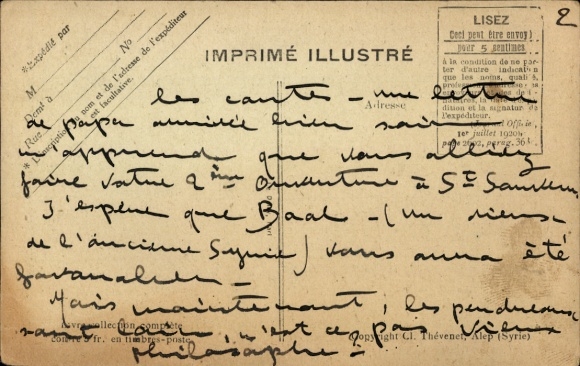 2
* Expédié par
M
Demt à
Rue
No
* L'inscription du nom et de l'adresse de l'expéditeur
est facultative.
IMPRIMÉ ILLUSTRÉ
LISEZ
Ceci peut être envoyé
pour 5 centimes
à la condition de ne por-
ter d'autre indication
que les noms, qualité,
dition et la signature de
l'expéditeur.
Journal Officiel
1er juillet 1920
page 363
Adresse
les cartes - une lettre
de papa arrivée hier soir
m'apprend que vous alliez
faire votre 2ème Ouverture à St
J'espère que Baal - (un dieu
de l'ancienne Syrie) vous aura été
favorable -
Mais maintenant, les perdreaux
sont loin, n'est ce pas vieux
philosophe -
collection complète
contre fr. en timbres-poste
Copyright Cl. Thévenet, Alep (Syrie)